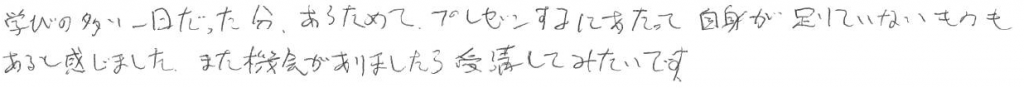 学びの多い一日だった分、あらためて、プレゼンするにあたって自身が足りていないものも
あると感じました。また機会がありましたら受講してみたいです